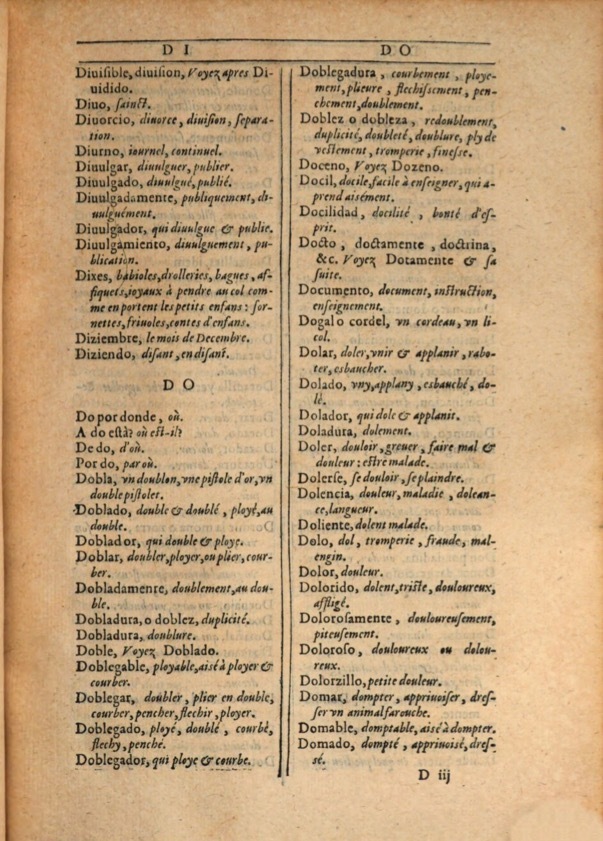 D I
Diuiſible, diuiſion, Voyez apres Di-
uidido.
Diuo, ſainct.
Diuorcio, diuorce, diuiſion, ſepara-
tion.
Diurno, iournel, continuel.
Diuulgar, diuulguer, publier.
Diuulgado, diuulgué, publié.
Diuulgadamente, publiquement, di-
uulguément.
Diuulgador, qui diuulgue & publie.
Diuulgamiento, diuulguement, pu-
blication.
Dixes, babioles, drolleries, bagues, af-
fiquets, ioyaux à pendre au col com-
me en portent les petits enfans : ſor-
nettes, friuoles, contes d'enfans.
Diziembre, le mois de Decembre.
Diziendo, diſant, en diſant.
D O
Do por donde, où.
A do eſtà? où eſt-il?
De do, d'où.
Por do, par où.
Dobla, vn doublon, vne piſtole d'or, vn
double piſtolet.
Doblado, double & doublé, ployé, au
double.
Doblador, qui double & ploye.
Doblar, doubler, ployer, ou plier, cour-
ber.
Dobladamente, doublement, au dou-
ble.
Dobladura, o doblez, duplicité.
Dobladura, doublure.
Doble, Voyez Doblado.
Doblegable, ployable, aisé à ployer &
courber.
Doblegar, doubler, plier en double,
courber, pencher, flechir, ployer.
Doblegado, ployé, doublé, courbé,
flechy, penché.
Doblegador, qui ploye & courbe.
D O
Doblegadura, courbement, ploye-
ment, plieure, flechiſſement, pen-
chement, doublement.
Doblez o dobleza, redoublement,
duplicité, doubleté, doublure, ply de
veſtement, tromperie, fineſſe.
Doceno, Voyez Dozeno.
Docil, docile, facile à enſeigner, qui a-
prend aisément.
Docilidad, docilité, bonté d'eſ-
prit.
Docto, doctamente, doctrina,
&c. Voyez Dotamente & ſa
ſuite.
Documento, document, inſtruction,
enſeignement.
Dogal o cordel, vn cordeau, vn li-
col.
Dolar, doler, vnir & applanir, rabo-
ter, esbaucher.
Dolado, vny, applany, esbauché, do-
lé.
Dolador, qui dole & applanit.
Doladura, dolement.
Doler, douloir, greuer, faire mal &
douleur : eſtre malade.
Dolerſe, ſe douloir, ſe plaindre.
Dolencia, douleur, maladie, dolean-
ce, langueur.
Doliente, dolent malade.
Dolo, dol, tromperie, fraude, mal-
engin.
Dolor, douleur.
Dolorido, dolent, triſte, douloureux,
affligé.
Doloroſamente, douloureuſement,
piteuſement.
Doloroſo, douloureux ou dolou-
reux.
Dolorzillo, petite douleur.
Domar, dompter, appriuoiſer, dreſ-
ſer vn animal farouche.
Domable, domptable, aisé à dompter.
Domado, dompté, appriuoisé, dreſ-
sé.
D iij